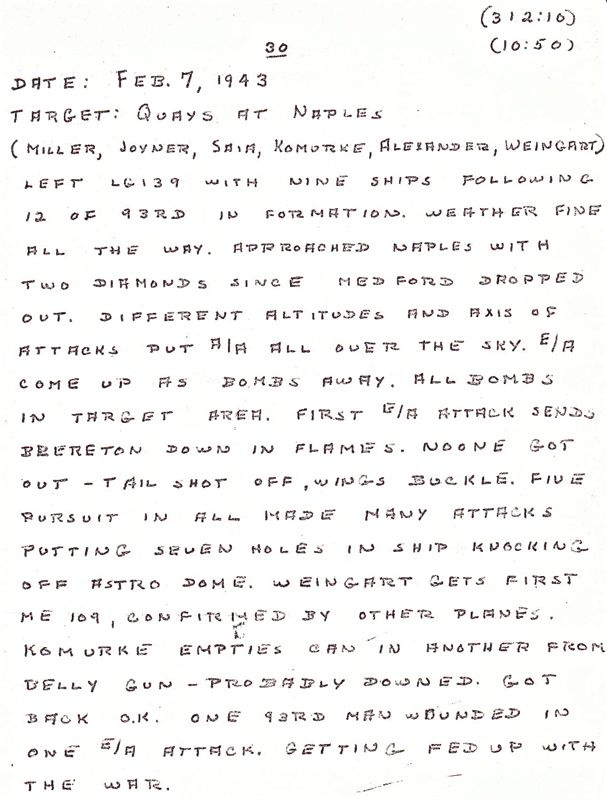 (312:10)
30 (10:50)
DATE: FEB. 7, 1943
TARGET: QUAYS AT NAPLES
(MILLER, JOYNER, SAIA, KOMURKE, ALEXANDER, WEINGART)
LEFT LG139 WITH NINE SHIPS FOLLOWING
12 OF 93RD IN FORMATION. WEATHER FINE
ALL THE WAY. APPROACHED NAPLES WITH
TWO DIAMONDS SINCE MEDFORD DROPPED
OUT. DIFFERENT ALTITUDES AND AXIS OF
ATTACKS PUT A/A ALL OVER THE SKY. E/A
COME UP AS BOMBS AWAY. ALL BOMBS
IN TARGET AREA. FIRST E/A ATTACK SENDS
BRERETON DOWN IN FLAMES. NOONE GOT
OUT - TAIL SHOT OFF, WINGS BUCKLE. FIVE
PURSUIT IN ALL MADE MANY ATTACKS
PUTTING SEVEN HOLES IN SHIP KNOCKING
OFF ASTRO DOME. WEINGART GETS FIRST
ME 109, CONFIRMED BY OTHER PLANES.
KOMURKE EMPTIES CAN IN ANOTHER FROM
BELLY GUN - PROBABLY DOWNED. GOT
BACK O.K. ONE 93RD MAN WOUNDED IN
ONE E/A ATTACK. GETTING FED UP WITH
THE WAR.